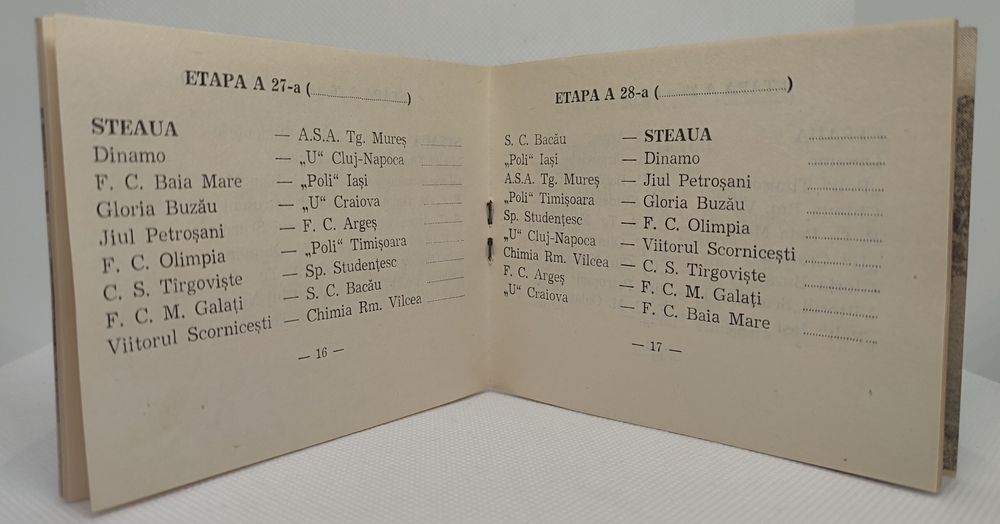 ETAPA A 27-a (....................)
STEAUA — A.S.A. Tg. Mureș ..........
Dinamo — „U“ Cluj-Napoca ..........
F. C. Baia Mare — „Poli“ Iași ..........
Gloria Buzău — „U“ Craiova ..........
Jiul Petroșani — F. C. Argeș ..........
F. C. Olimpia — „Poli“ Timișoara ..........
C. S. Tîrgoviște — Sp. Studențesc ..........
F. C. M. Galați — S. C. Bacău ..........
Viitorul Scornicești — Chimia Rm. Vîlcea ..........
— 16 —
ETAPA A 28-a (....................)
S. C. Bacău — STEAUA ..........
„Poli“ Iași — Dinamo ..........
A.S.A. Tg. Mureș — Jiul Petroșani ..........
„Poli“ Timișoara — Gloria Buzău ..........
Sp. Studențesc — F. C. Olimpia ..........
„U“ Cluj-Napoca — Viitorul Scornicești ..........
Chimia Rm. Vîlcea — C. S. Tîrgoviște ..........
F. C. Argeș — F. C. M. Galați ..........
„U“ Craiova — F. C. Baia Mare ..........
— 17 —